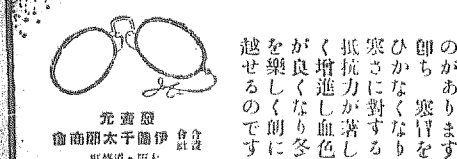 のがあります
卽ち 寒冒を
ひかなくなり
寒さに對する
抵抗力が著し
く增進し血色
が良くなり冬
を樂しく朗に
越せるのです
發賣元
合資會社 伊藤千太郎商會